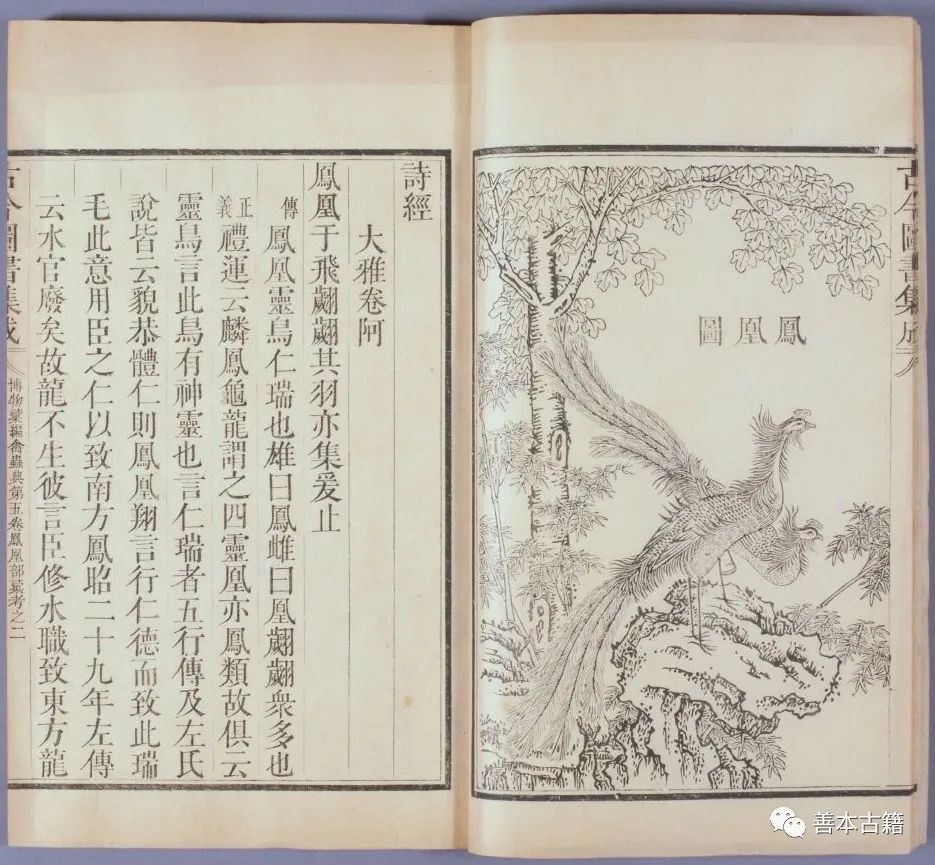 古今圖書集成
鳳凰圖
詩經
大雅卷阿
鳳凰于飛翽翽其羽亦集爰止
傳 鳳凰靈鳥仁瑞也雄曰鳳雌曰凰翽翽衆多也
正義 禮運云麟鳳龜龍謂之四靈凰亦鳳類故俱云
靈鳥言此鳥有神靈也言仁瑞者五行傳及左氏
說皆云貌恭體仁則鳳凰翔言行仁德而致此瑞
毛此意用臣之仁以致南方鳳昭二十九年左傳
云水官廢矣故龍不生彼言臣修水職致東方龍
古今圖書集成
博物彙編禽蟲典第五卷鳳凰部彙考之二
善本古籍